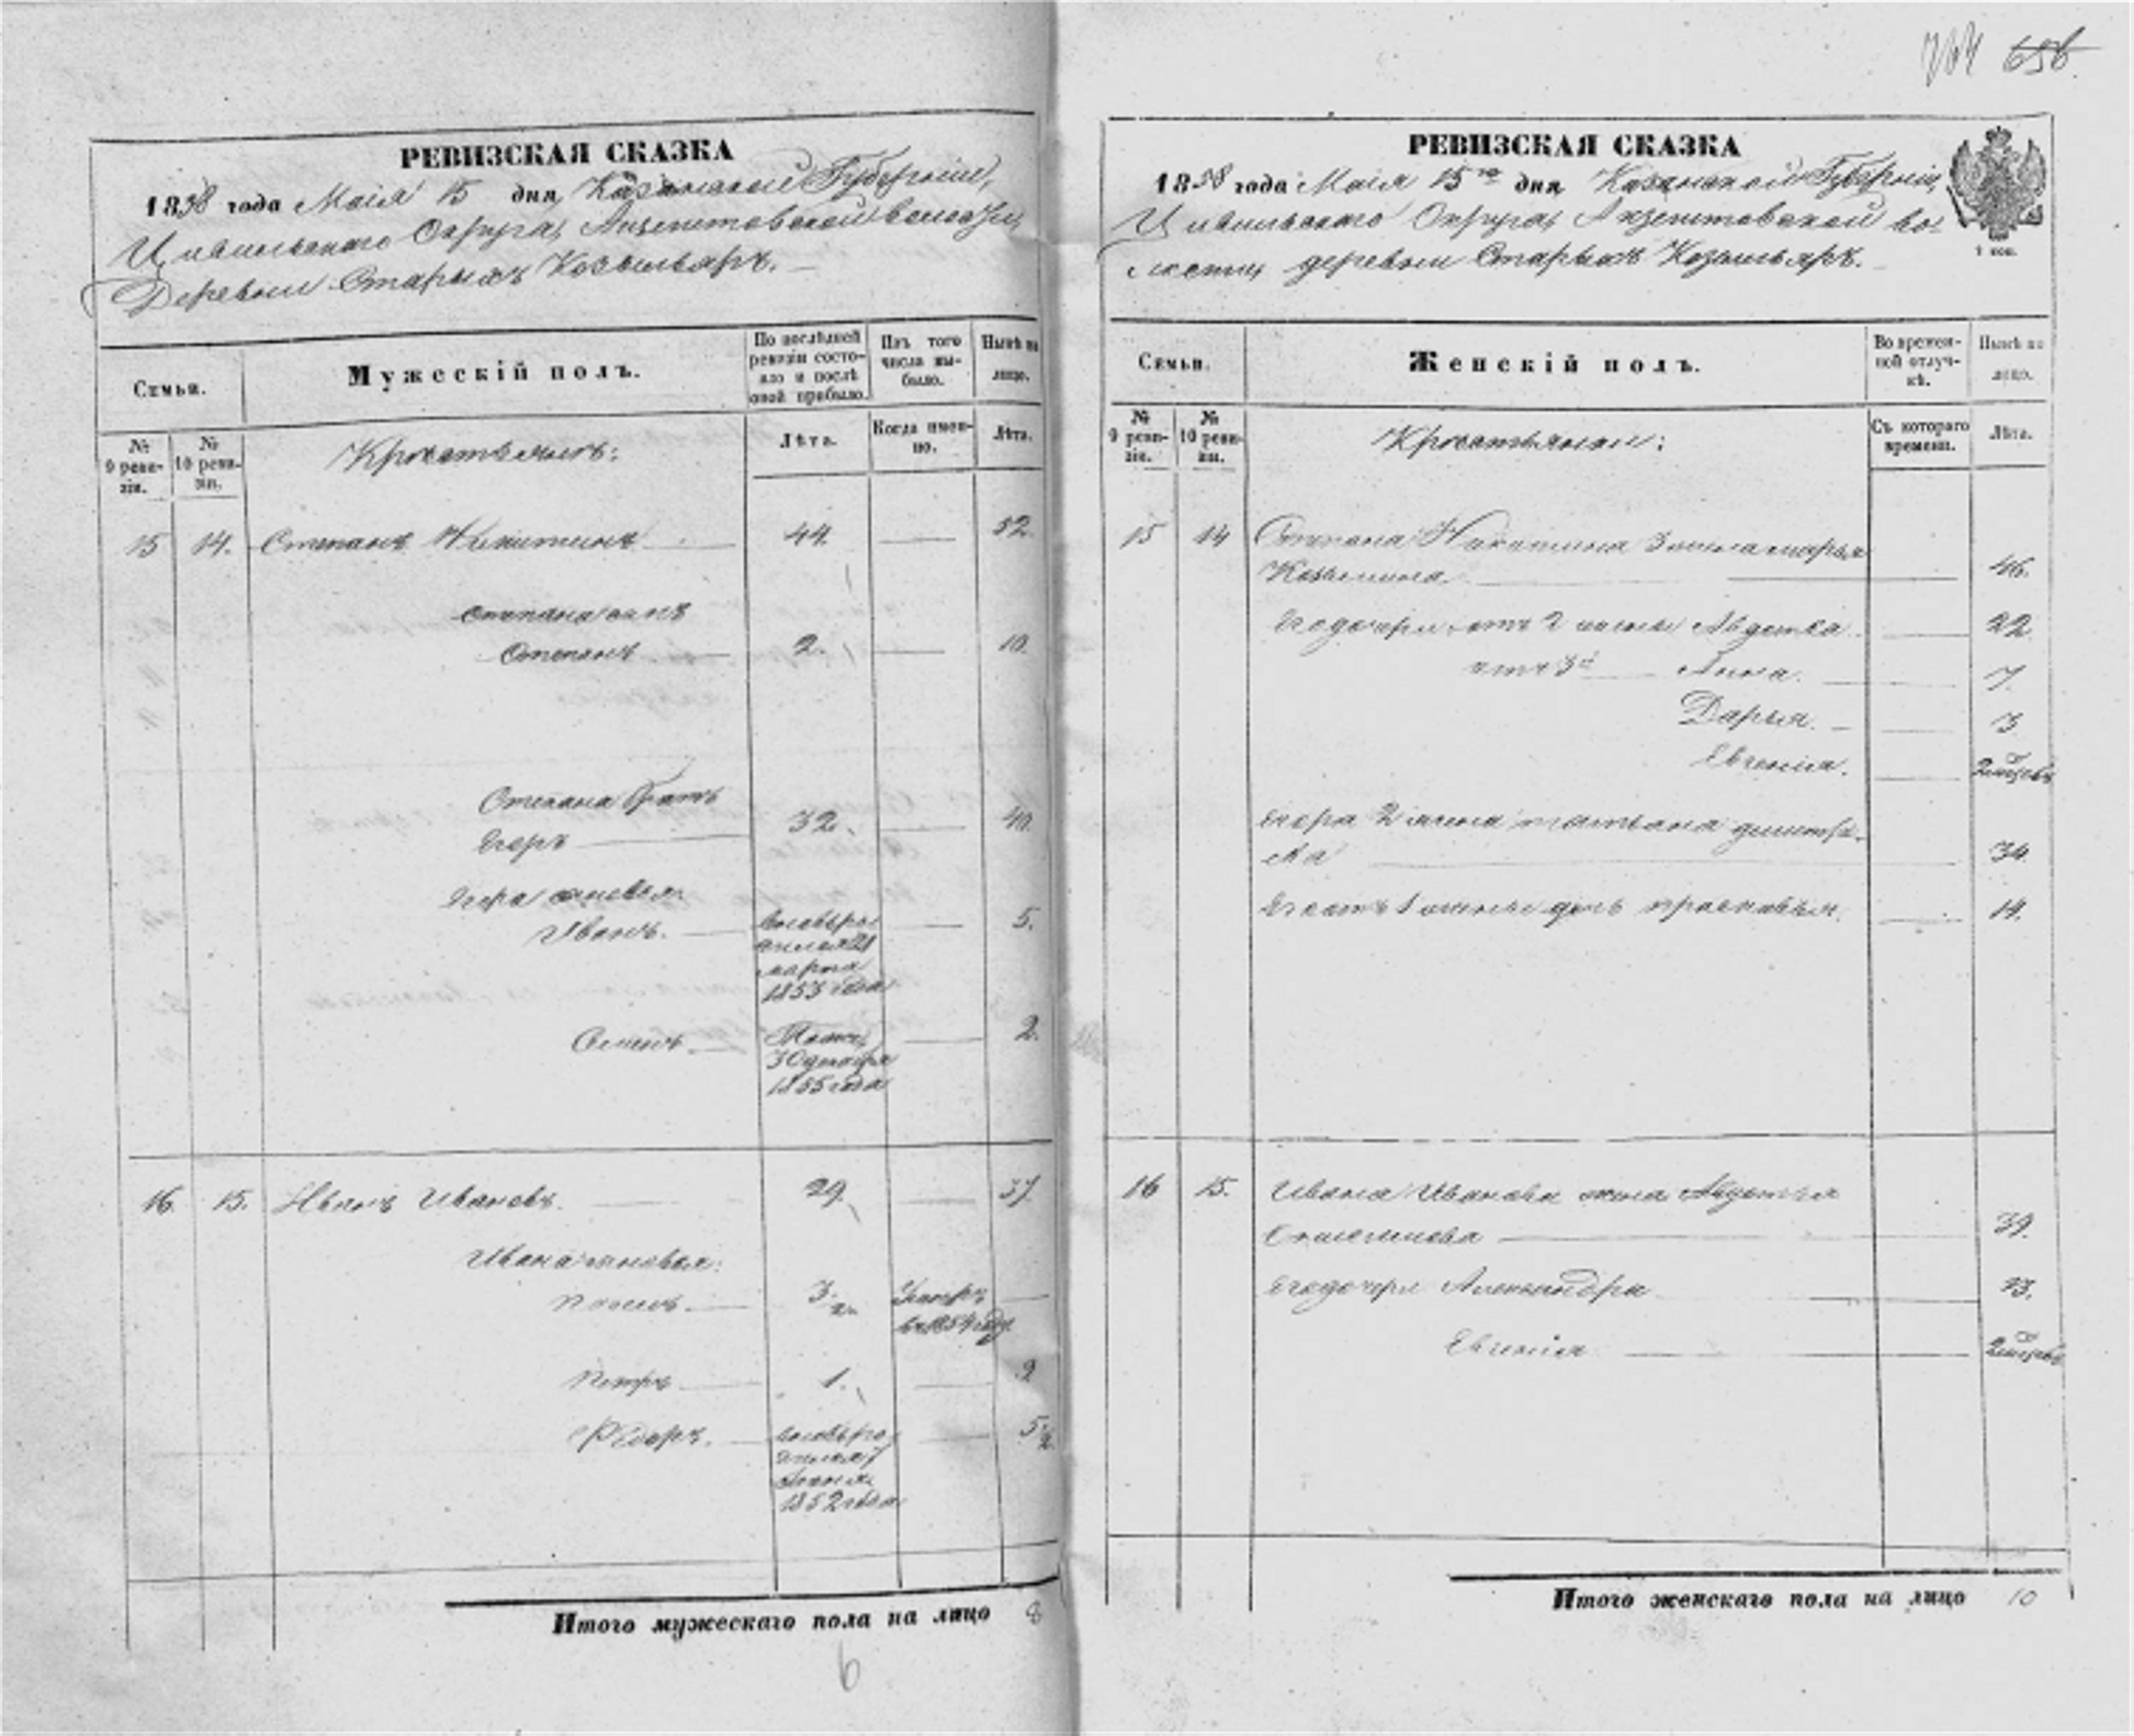 704 656
РЕВИЗСКАЯ СКАЗКА
1858 года Маія 15 дня, Казанской Губерніи,
Цивильскаго Округа, Акзегитовской волости,
Деревни Старыхъ Козыльяръ.
Семьи.
Мужескій полъ.
По послѣдней ревизіи состояло и послѣ оной прибыло.
Изъ того числа выбыло.
Нынѣ на лицо.
№ 9 ревизіи.
№ 10 ревизіи.
Крестьянъ:
Лѣта.
Когда именно.
Лѣта.
15 14. Степанъ Никитинъ 44. 52.
Степана сынъ
Степанъ 2. 10.
Степана братъ
Егоръ 32. 40.
Егора сыновья
Иванъ. 5.
марта
1853 года
Семенъ 2.
30 декабря
1855 года
16 15. Иванъ Ивановъ. 29. 37.
Ивана сыновья:
3.
въ 1854 году
Петръ 1. 9
Федоръ. 5 1/2
1852 года
Итого мужескаго пола на лицо 8
6
РЕВИЗСКАЯ СКАЗКА
1858 года Маія 15го дня Казанской Губерніи,
Цивильскаго Округа, Акзегитовской во-
лости, деревни Старыхъ Козыльяръ.
Семьи.
Женскій полъ.
Во временной отлучкѣ.
Нынѣ на лицо.
№ 9 ревизіи.
№ 10 ревизіи.
Крестьянки:
Съ котораго времени.
Лѣта.
15 14 Степана Никитина 3 жена марья
Козьмина. 46.
Его дочери отъ 2 жены Авдотья 22
отъ 3й Анна. 7.
Дарья. 3
Евгенія. 2 мѣсеца
Егора 2 жена татьяна дмитріе-
ва 34.
Его отъ 1 жены дочь прасковья. 14.
16 15. Ивана Иванова жена Авдотья
39.
Его дочери Александра 13.
Евгенія 2 мѣсеца
Итого женскаго пола на лицо 10